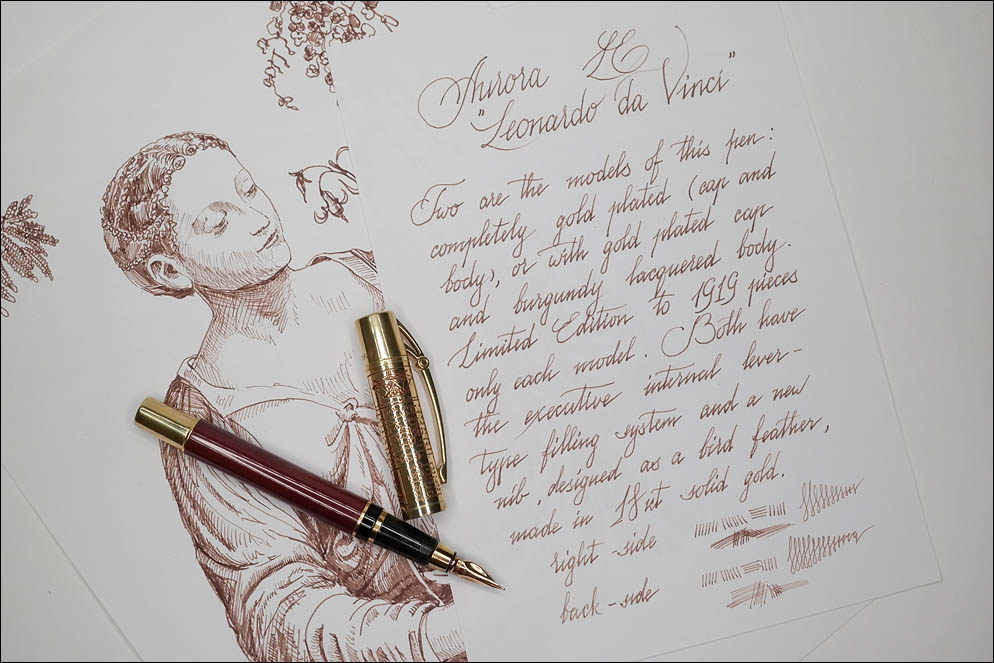 Aurora LE
"Leonardo da Vinci"
Two are the models of this pen:
completely gold plated (cap and
body), or with gold plated cap
and burgundy lacquered body.
Limited Edition to 1919 pieces
only each model. Both have
the executive internal lever-
type filling system and a new
nib, designed as a bird feather,
made in 18kt solid gold.
right-side
back-side